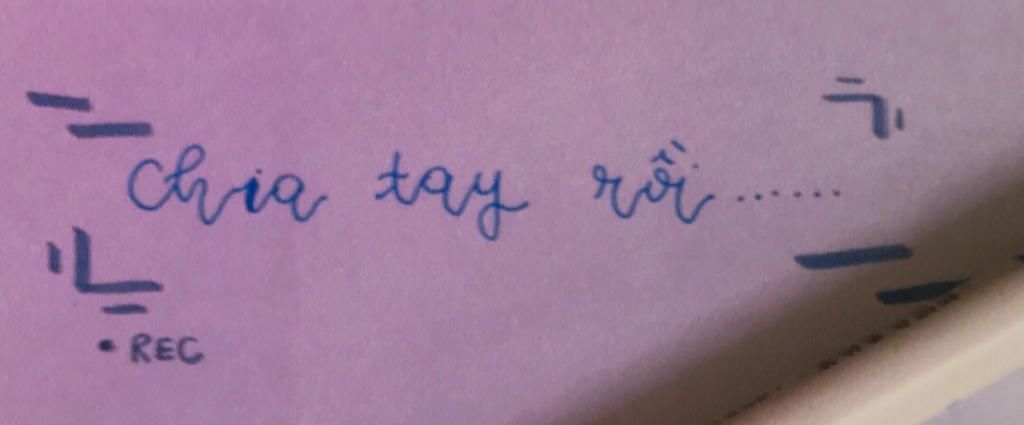 Chia tay rồi ......
• REC